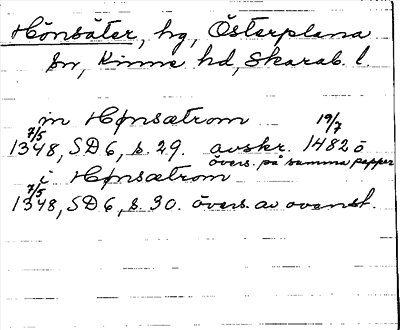 Hönsäter, hg, Österplana
sn, Kinne hd, Skarab. l.
in Hønsætrom 19/7
7/5
1348, SD 6, s. 29. avskr. 1482 ö
övers. på samma papper
i Hønsætrom
7/5
1348, SD 6, s. 30. övers. av ovenst.